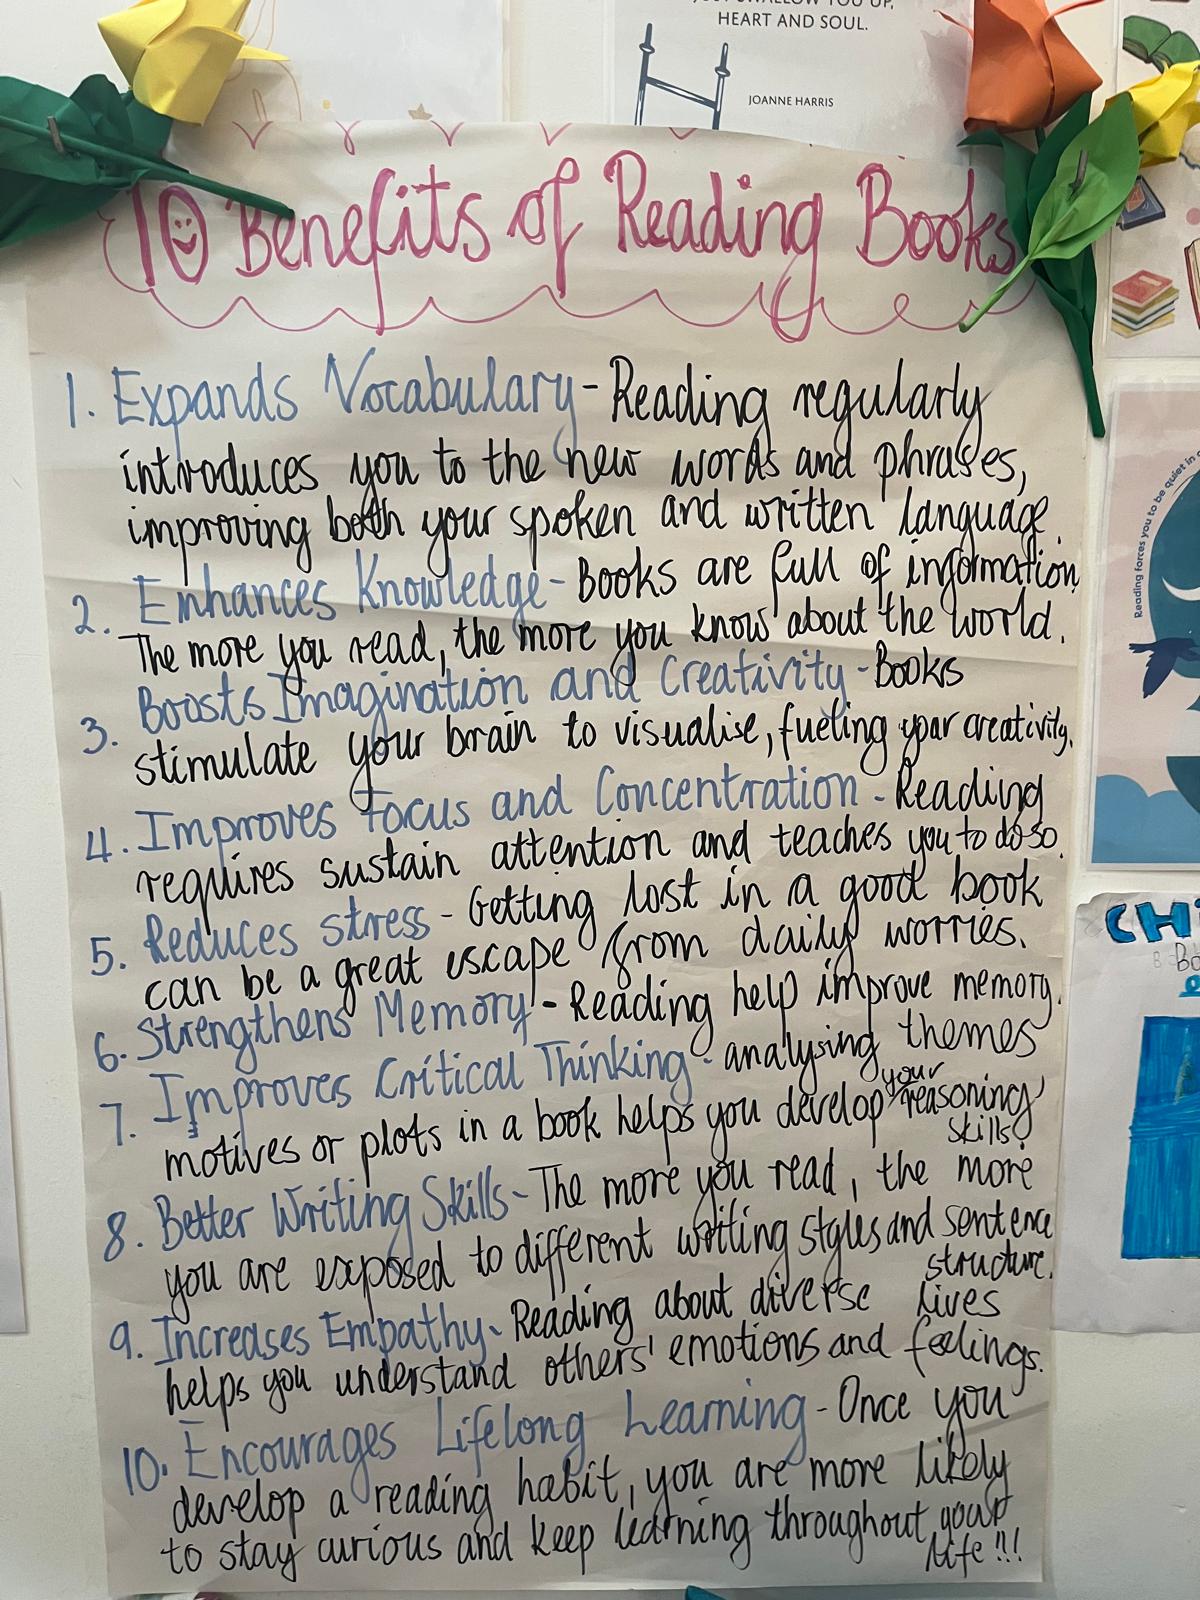 HEART AND SOUL.
JOANNE HARRIS
10 Benefits of Reading Books
1. Expands Vocabulary - Reading regularly
introduces you to the new words and phrases,
improving both your spoken and written language.
2. Enhances Knowledge - Books are full of information.
The more you read, the more you know about the world.
3. Boosts Imagination and Creativity - Books
stimulate your brain to visualise, fueling your creativity.
4. Improves Focus and Concentration - Reading
requires sustain attention and teaches you to do so.
5. Reduces stress - Getting lost in a good book
can be a great escape from daily worries.
6. Strengthens Memory - Reading help improve memory.
7. Improves Critical Thinking - analysing themes
motives or plots in a book helps you develop your reasoning
skills.
8. Better Writing Skills - The more you read, the more
you are exposed to different writing styles and sentence
structure.
9. Increases Empathy - Reading about diverse lives
helps you understand others' emotions and feelings.
10. Encourages Lifelong Learning - Once you
develop a reading habit, you are more likely
to stay curious and keep learning throughout your
life!!!
Reading forces you to be quiet in
CH